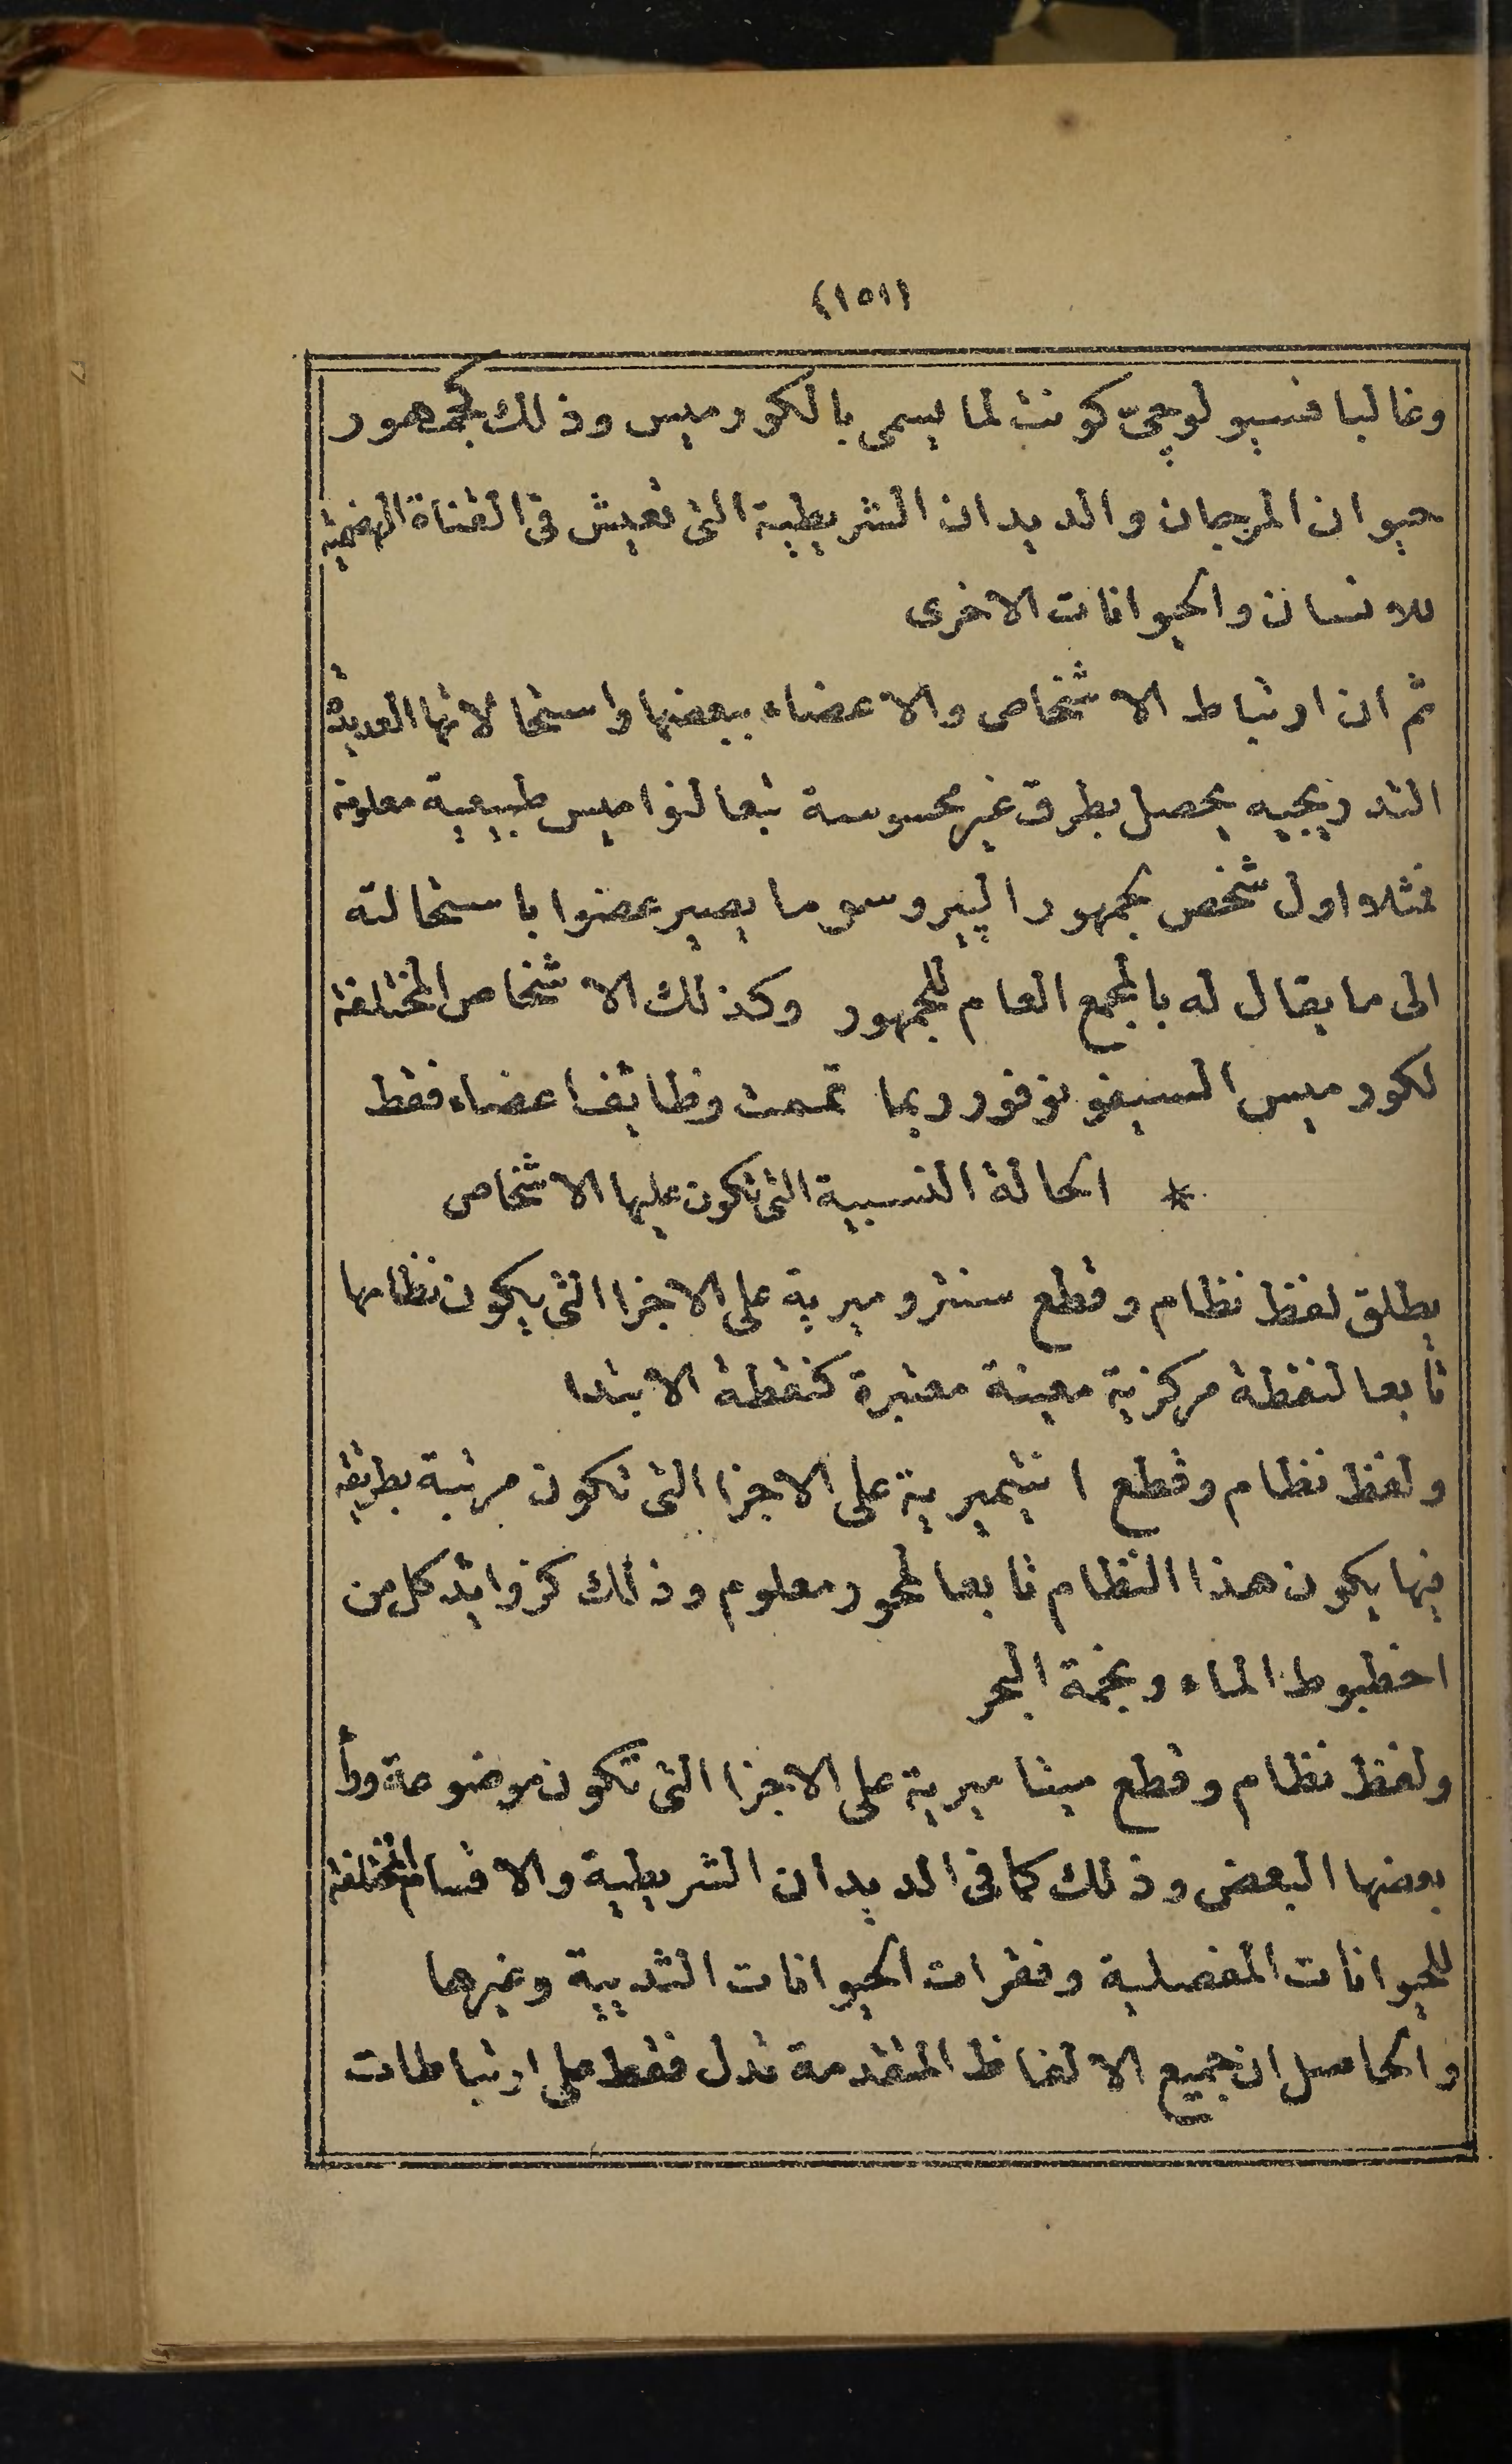 (١٥١)
وغالبا فسيولوجىّ كونت لما يسمى بالكورميس وذلك كجمهور
حيوان المرجان والديدان الشريطية التى تعيش فى القناة الهضمية
للانسان والحيوانات الاخرى
ثم ان ارتباط الاشخاص والاعضاء ببعضها واستحالاتها العديدة
التدريجيه يحصل بطرق غير محسوسة تبعا لنواميس طبيعية معلومة
فمثلا اول شخص بجمهور الپيروسوما يصير عضوا باستحالته
الى ما يقال له بالمجمع العام للجمهور وكذلك الاشخاص المختلفة
لكورميس السيفونوفور ربما تممت وظائف اعضاء فقط
* الحالة النسبية التى تكون عليها الاشخاص
يطلق لفظ نظام وقطع سنتروميرية على الاجزا التى يكون نظامها
تابعا لنقطة مركزية معينة معتبرة كنقطة الابتدا
ولفظ نظام وقطع انتيميرية على الاجزا التى تكون مرتبة بطريقة
فيها يكون هذا النظام تابعا لمحور معلوم وذلك كزوايد كل من
اخطبوط الماء ونجمة البحر
ولفظ نظام وقطع ميتاميرية على الاجزا التى تكون موضوعة ورأ
بعضها البعض وذلك كما فى الديدان الشريطية والاقسام المختلفة
للحيوانات المفصلية وفقرات الحيوانات الثديية وغيرها
والحاصل ان جميع الالفاظ المتقدمة تدل فقط على ارتباطات